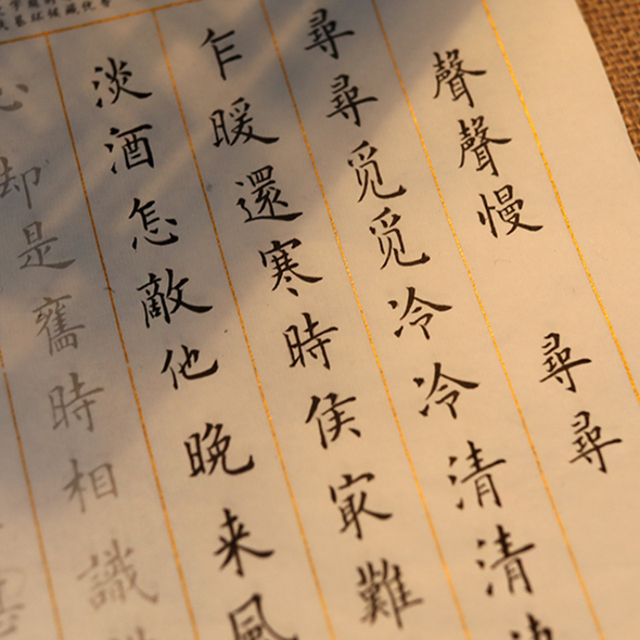 聲聲慢 尋尋
尋尋覓覓冷冷清清
乍暖還寒時侯寂難
淡酒怎敵他晚来風
心却是舊時相識